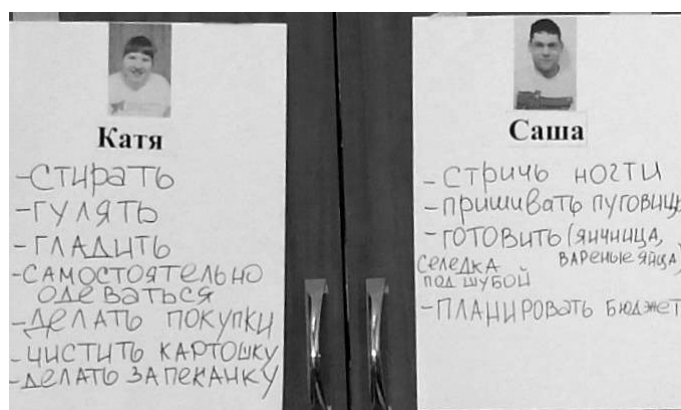 Катя
-СТИРАТЬ
-ГУЛЯТЬ
-ГЛАДИТЬ
-САМОСТОЯТЕЛЬНО
ОДЕВАТЬСЯ
-ДЕЛАТЬ ПОКУПКИ
-ЧИСТИТЬ КАРТОШКУ
-ДЕЛАТЬ ЗАПЕКАНКУ
Саша
- СТРИЧЬ НОГТИ
-ПРИШИВАТЬ ПУГОВИЦЫ
-ГОТОВИТЬ (ЯИЧНИЦА,
ВАРЕНЫЕ ЯЙЦА,
СЕЛЕДКА
ПОД ШУБОЙ
-ПЛАНИРОВАТЬ БЮДЖЕТ